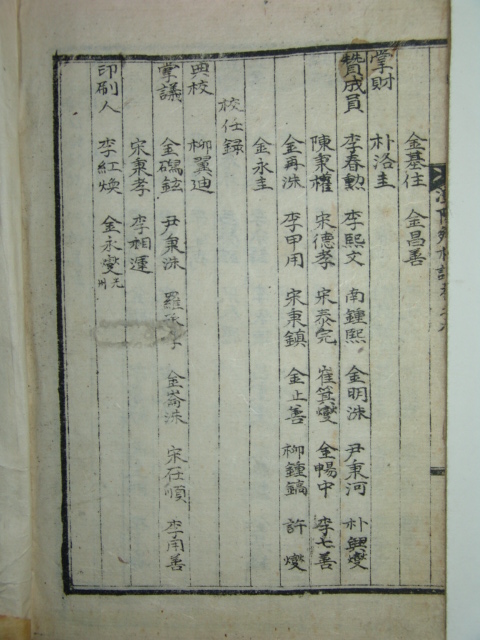 金基住 金昌善
掌財
朴洛圭
贊成員
李春勳 李熙文 南鍾熙 金明洙 尹秉河 朴興燮
陳秉權 宋德孝 宋泰完 崔箕燮 金暢中 李七善
金再洙 李甲用 宋秉鎭 金止善 柳鍾鎬 許燮
金永圭
校任錄
典校 柳翼迪
掌議 金碣鉉 尹秉洙 羅 金崙洙 宋在順 李用善
宋秉孝 李相運
印刷人 李紅煥 金永燮